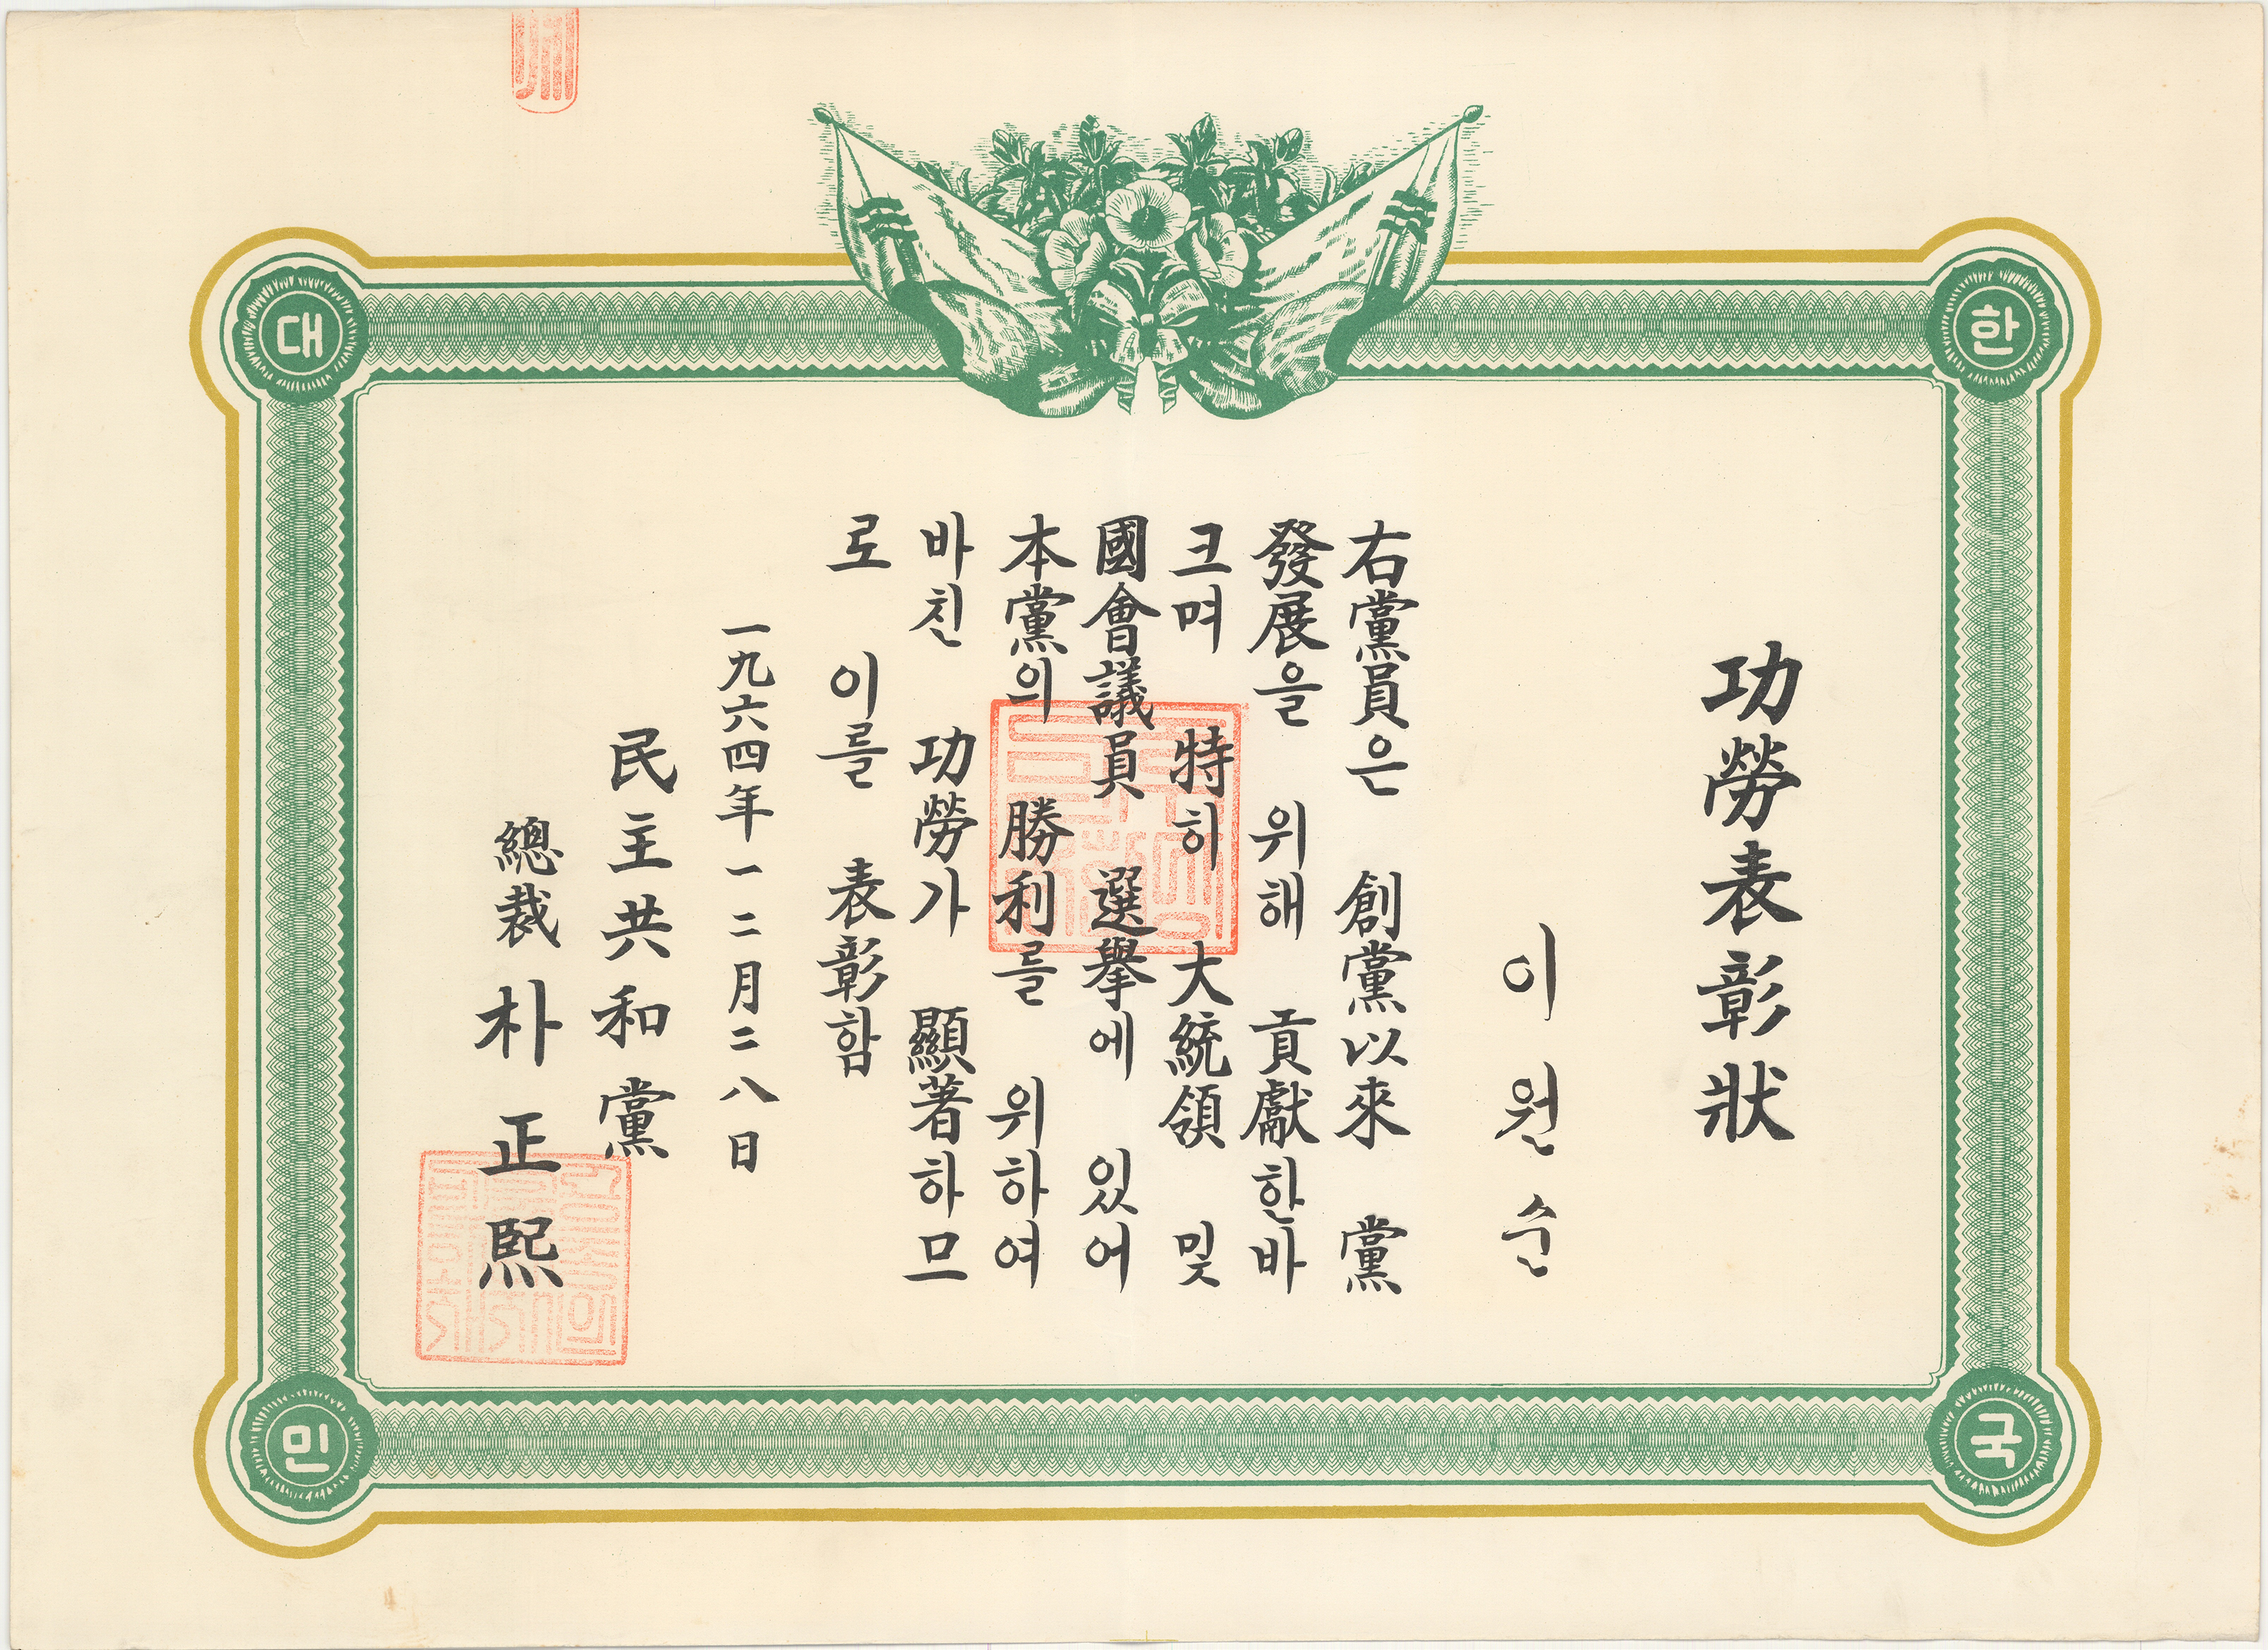 功勞表彰狀
이원순
右黨員은 創黨以來 黨
發展을 위해 貢獻한바
크며 特히 大統領 및
國會議員 選擧에 있어
本黨의 勝利를 위하여
바친 功勞가 顯著하므
로 이를 表彰함
一九六四年一二月二八日
民主共和黨
總裁 朴正熙
대
한
민
국